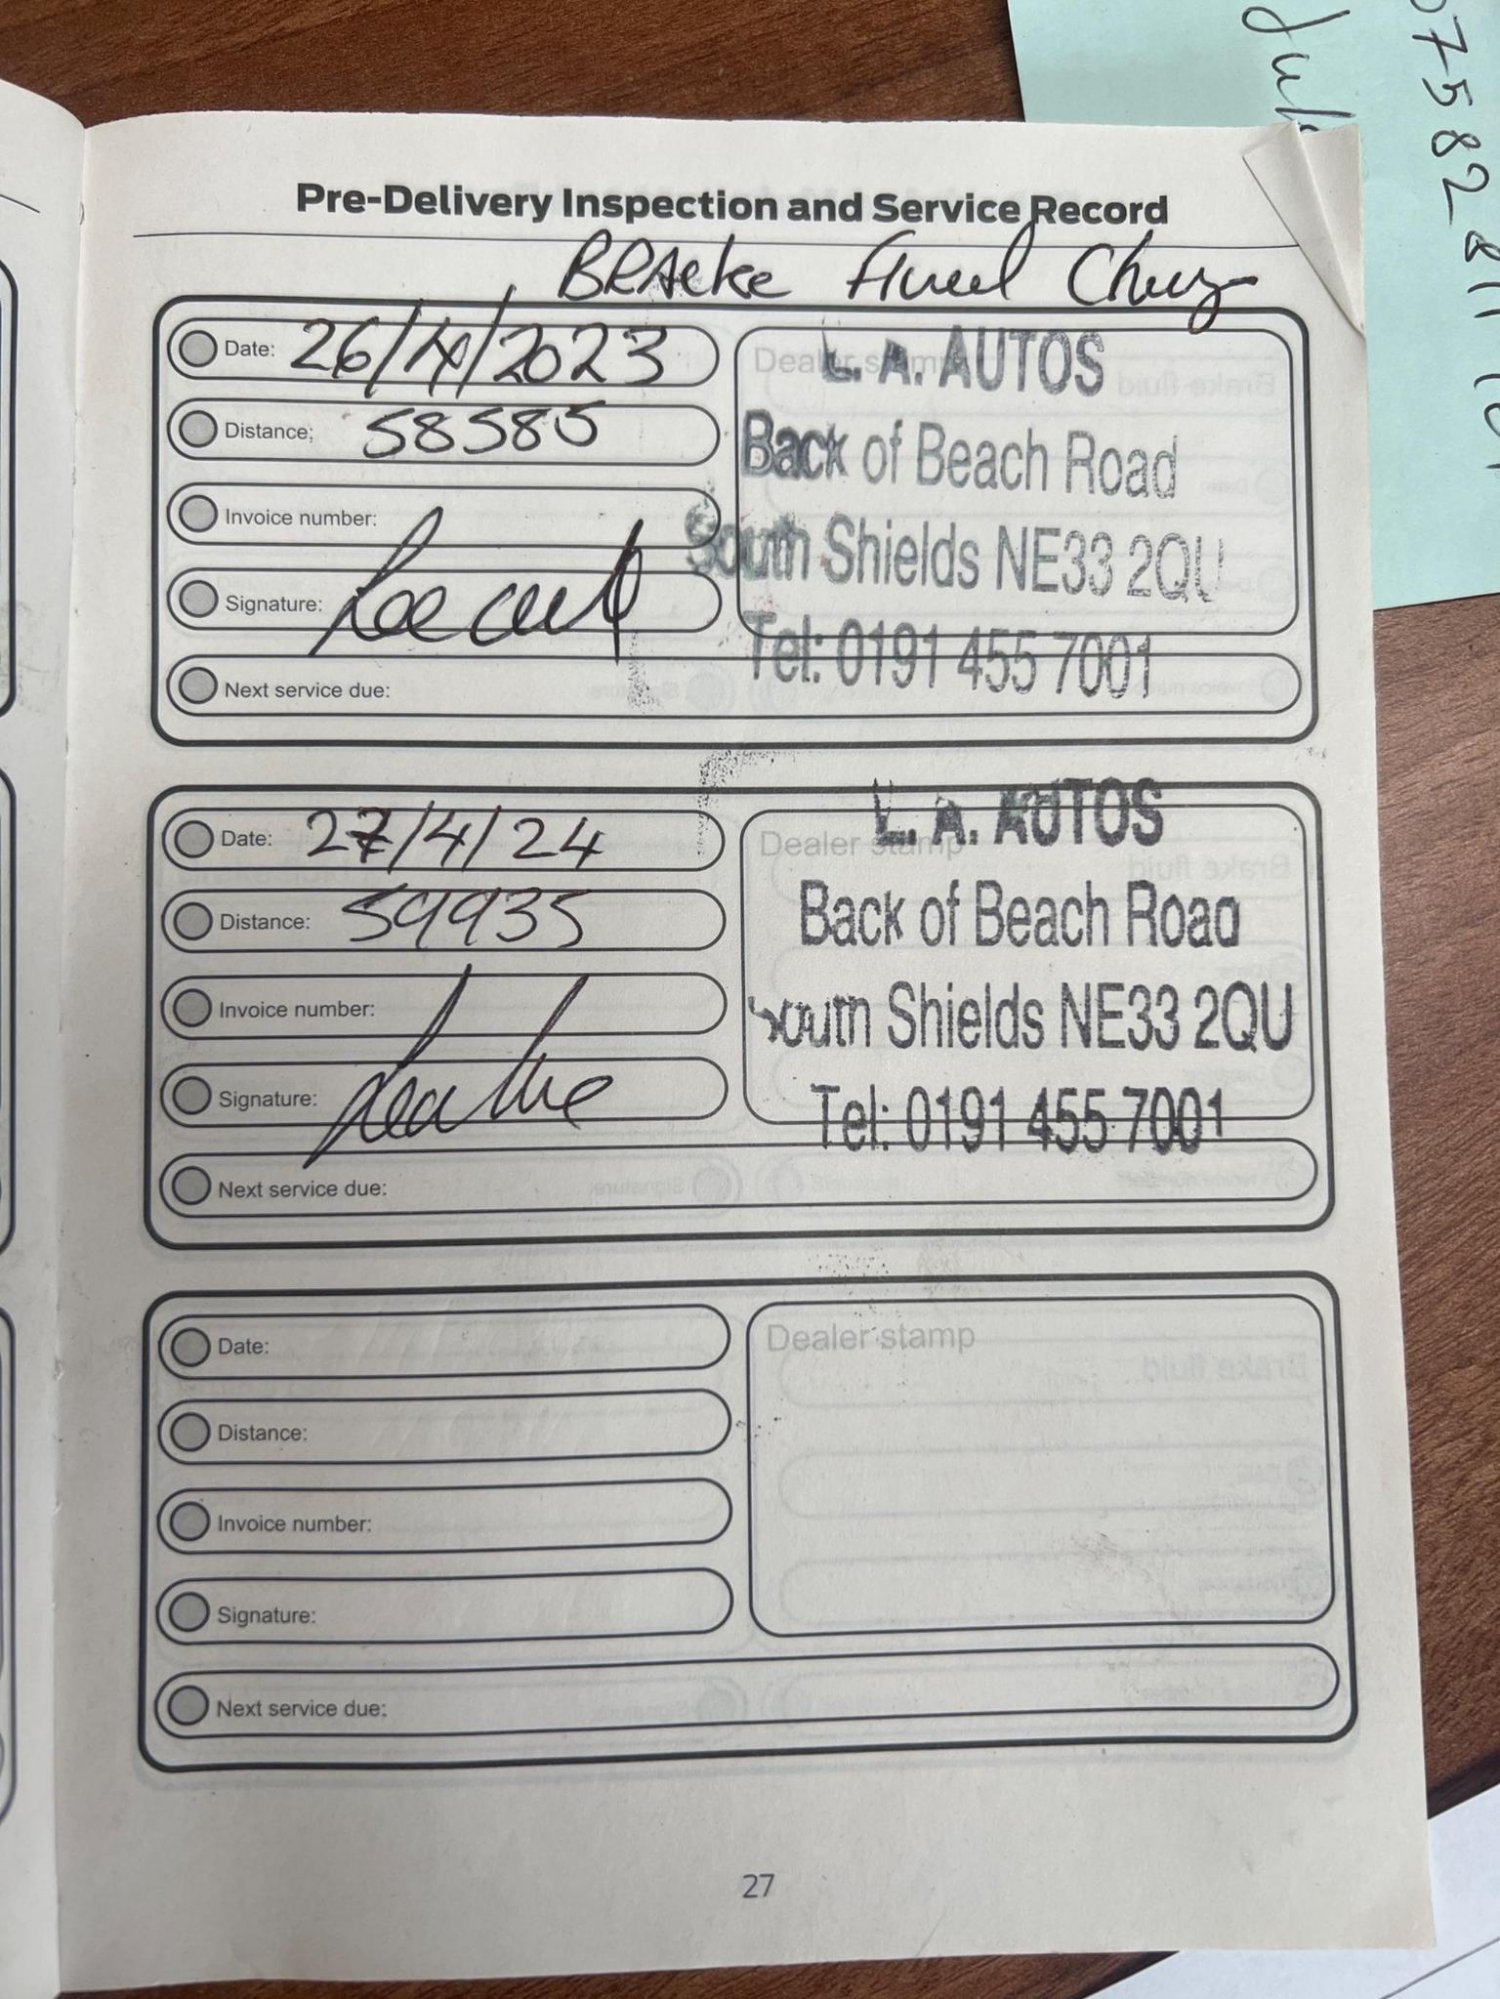 Pre-Delivery Inspection and Service Record
BRAeke Flued Chug
Date: 26/4/2023
Distance; 58585
Invoice number:
Signature:
Next service due:
Dealer stamp
L. A. AUTOS
Back of Beach Road
South Shields NE33 2QU
Tel: 0191 455 7001
Date: 27/4/24
Distance: 59935
Invoice number:
Signature:
Next service due:
Dealer stamp
L. A. AUTOS
Back of Beach Road
South Shields NE33 2QU
Tel: 0191 455 7001
Date:
Distance:
Invoice number:
Signature:
Next service due:
Dealer stamp
27